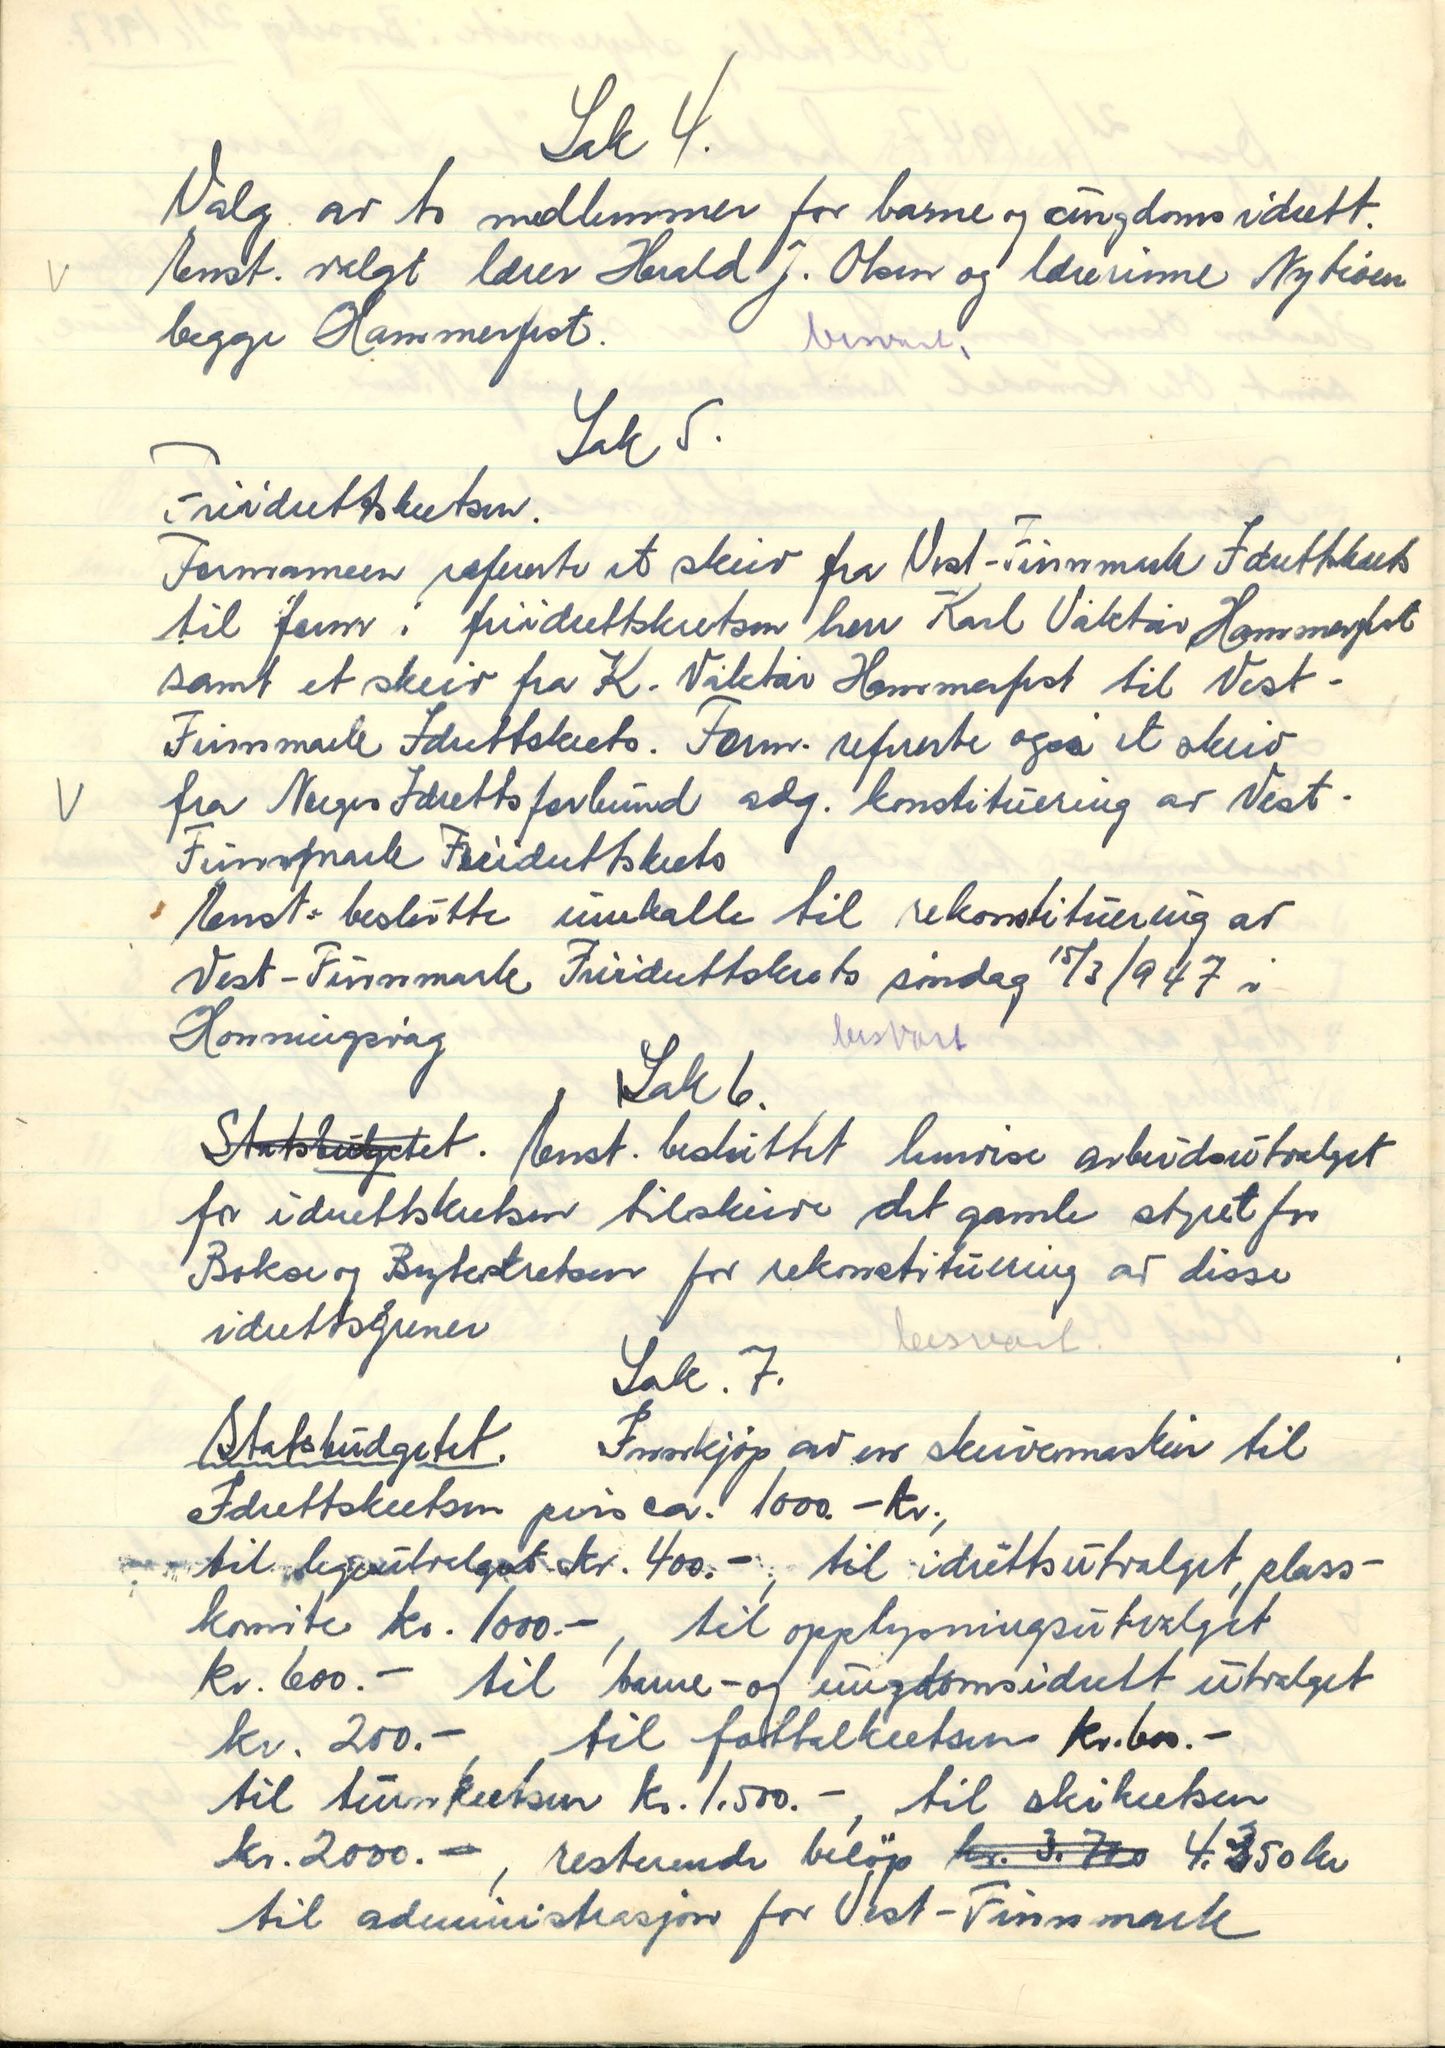 Sak 4.
Valg av to medlemmer for barne og ungdoms idrett.
V Enst. valgt lærer Harald J. Olsen og lærerinne
begge Hammerfest. besvart.
Sak 5.
Friidrettskretsen.
Formannen refererte et skriv fra Vest-Finnmark Idrettskrets
til form i friidrettskretsen herr Karl Viktár Hammerfest
samt et skriv fra K. Viktár Hammerfest til Vest-
Finnmark Idrettskrets. Form. refererte også et skriv
V fra Norges Idrettsforbund adg. konstituering av Vest-
Finnmark Friidrettskrets
Enst. beslutte innkalle til rekonstituering av
Vest-Finnmark Friidrettskrets søndag 15/3/947 i
Honningsvåg besvart
Sak 6.
Statsbudgetet. Enst. besluttet henvise arbeidsutvalget
for idrettskretsen tilskrive det gamle styret for
Bokse og Brytekretsen for rekonstituering av disse
idrettsgrener besvart.
Sak. 7.
Statsbudgetet. Innkjøp av en skrivemaskin til
Idrettskretsen pris ca. 1000.- kr.,
til legeutvalget kr. 400.-, til idrettsutvalget, plass-
komite kr. 1000.-, til opplysningsutvalget
kr. 600.- til barne- og ungdomsidrett utvalget
kr. 200.-, til fotballkretsen kr. 600.-
til turnkretsen kr. 1.500.-, til skikretsen
kr. 2000.-, resterende beløp kr. 3.700 4.350 kr
til administrasjon for Vest-Finnmark